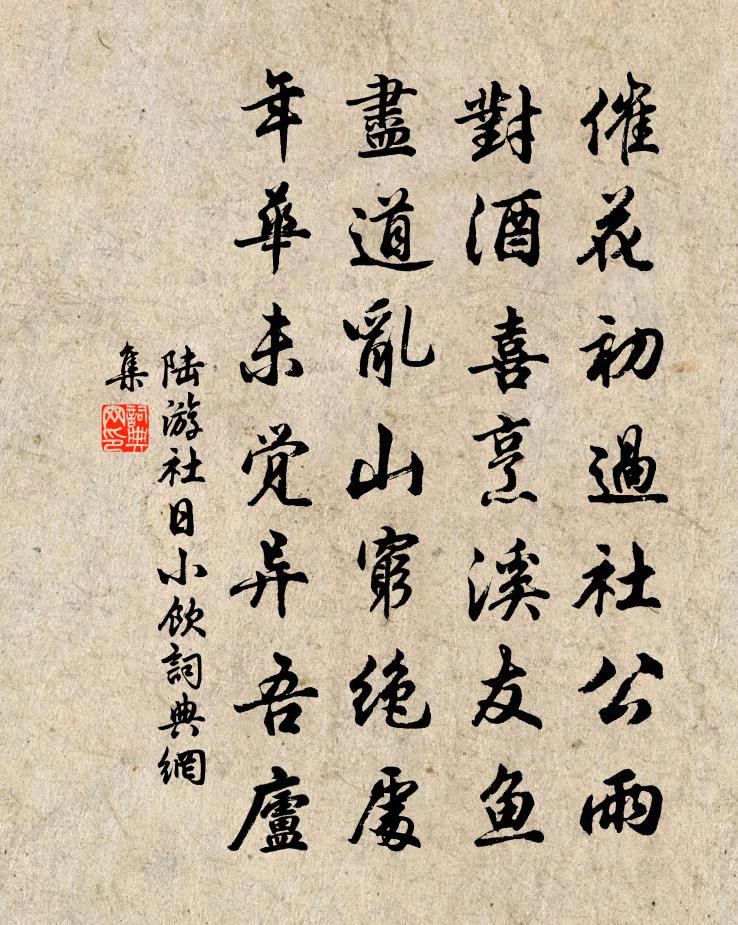 催花初過社公雨
對酒喜烹溪友鱼
盡道亂山窮絶處
年華未觉异吾廬
陆游社日小飲詞典網
集
詞典网印